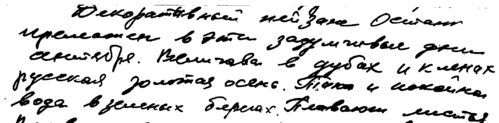 Декоративный пейзаж Осітант
прелестен в эти задумчивые дни
сентября. Величава в дубах и кленах
русская золотая осень. Тиха и покойна
вода в зеленых берегах. Плавают листья